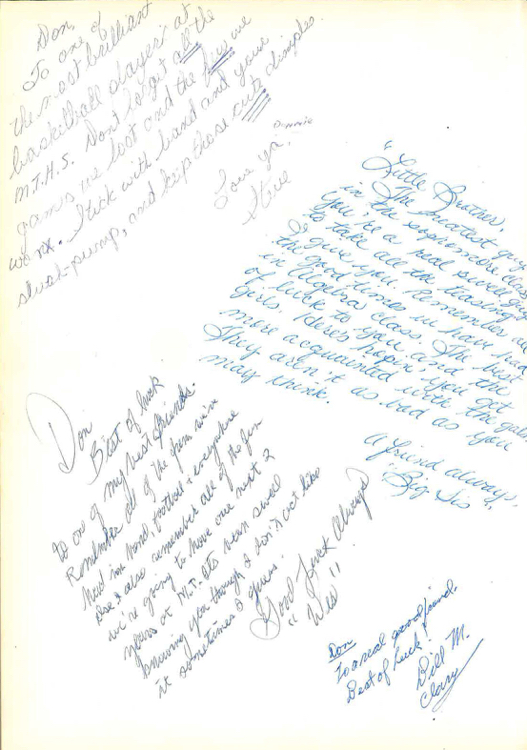 Don,
To one of
the most brilliant
basketball players at
M.T.H.S. Don't forget all the
games we lost and the few we
won. Stick with band and your
and keep those cute dimples.
Love ya,
Steve
"Little Brother,
The greatest guy
in the sophomore class.
You're a real swell guy
to take all the teasing
I give you. Remember all
the good times we have had
in Algebra class. The best
of luck to you and the
girls. Here's hopin' you get
more acquainted with the girls.
They aren't as bad as you
may think.
A friend always,
"Big Sis"
Don
Best of luck
to one of my best friends.
Remember all of the fun we've
had in band, football & everywhere
else & also remember all of the fun
we're going to have our next 2
years at M.T. It's been swell
knowing you though I don't act like
it sometimes I guess.
Good Luck Always
"Wes"
Don
To a real good friend.
Best of luck
Bill M.
Clary